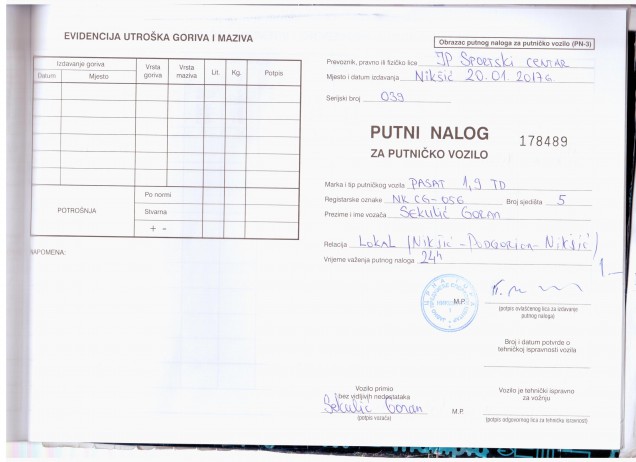 EVIDENCIJA UTROŠKA GORIVA I MAZIVA
Izdavanje goriva
Datum
Mjesto
Vrsta goriva
Vrsta maziva
Ut.
Kg.
Potpis
POTROŠNJA
Po normi
Stvarna
+ -
NAPOMENA:
Obrazac putnog naloga za putničko vozilo (PN-3)
Prevoznik, pravno ili fizičko lice JP SPORTSKI CENTAR
Mjesto i datum izdavanja NIKŠIĆ 20.01.2017G
Serijski broj 039
PUTNI NALOG 178489
ZA PUTNIČKO VOZILO
Marka i tip putničkog vozila PASAT 1,9 TD
Registarske oznake NK CG-056 Broj sjedišta 5
Prezime i ime vozača SEKULIĆ GORAN
Relacija LOKAL (NIKŠIĆ-PODGORICA-NIKŠIĆ)
Vrijeme važenja putnog naloga 24h
M.P.
(potpis ovlašćenog lica za izdavanje
putnog naloga)
Broj i datum potvrde o
tehničkoj ispravnosti vozila
Vozilo primio
bez vidljivih nedostataka
Sekulić Goran
(potpis vozača)
M.P.
Vozilo je tehnički ispravno
za vožnju
(potpis odgovornog lica za tehničku ispravnost)